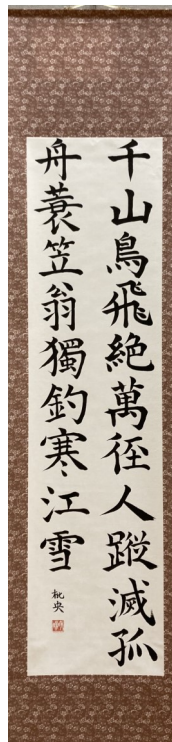 千山鳥飛絶萬徑人蹤滅孤
舟蓑笠翁獨釣寒江雪